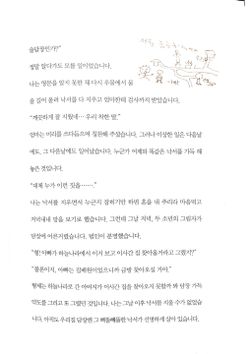 슬답장인가?"
정말 쌀다가도 모를 일이었습니다.
나는 영문을 알지 못한 채 다시 우물에서 물
을 길어 올려 낙서를 다 지우고 엄마한테 검사까지 받았습니다.
"깨끗하게 잘 지웠네…… 우리 착한 딸."
엄마는 머리를 쓰다듬으며 칭찬해 주셨습니다. 그러나 이상한 일은 다음날
에도, 그 다음날에도 일어났습니다. 누군가 어제와 똑같은 낙서를 가득 해
놓은 것입니다.
"대체 누가 이런 짓을……."
나는 낙서를 지우면서 누군지 잡히기만 하면 혼을 내 주리라 마음먹고
저녁내내 망을 보기로 했습니다. 그런데 그날 저녁, 두 소년의 그림자가
담장에 어른거렸습니다. 범인이 분명했습니다.
"형! 아빠가 하늘나라에서 이거 보고 이사간 집 찾아올거라고 그랬지?"
"물론이지, 아빠는 집배원이었으니까 금방 찾아오실 거야."
형제는 하늘나라로 간 아버지가 이사간 집을 찾아오지 못할까 봐 담장 가득
약도를 그리고 또 그렸던 것입니다. 나는 그날 이후 낙서를 지울 수가 없었습
니다. 아직도 우리집 담장엔 그 삐뚤빼뚤한 낙서가 선명하게 살아 있습니다.